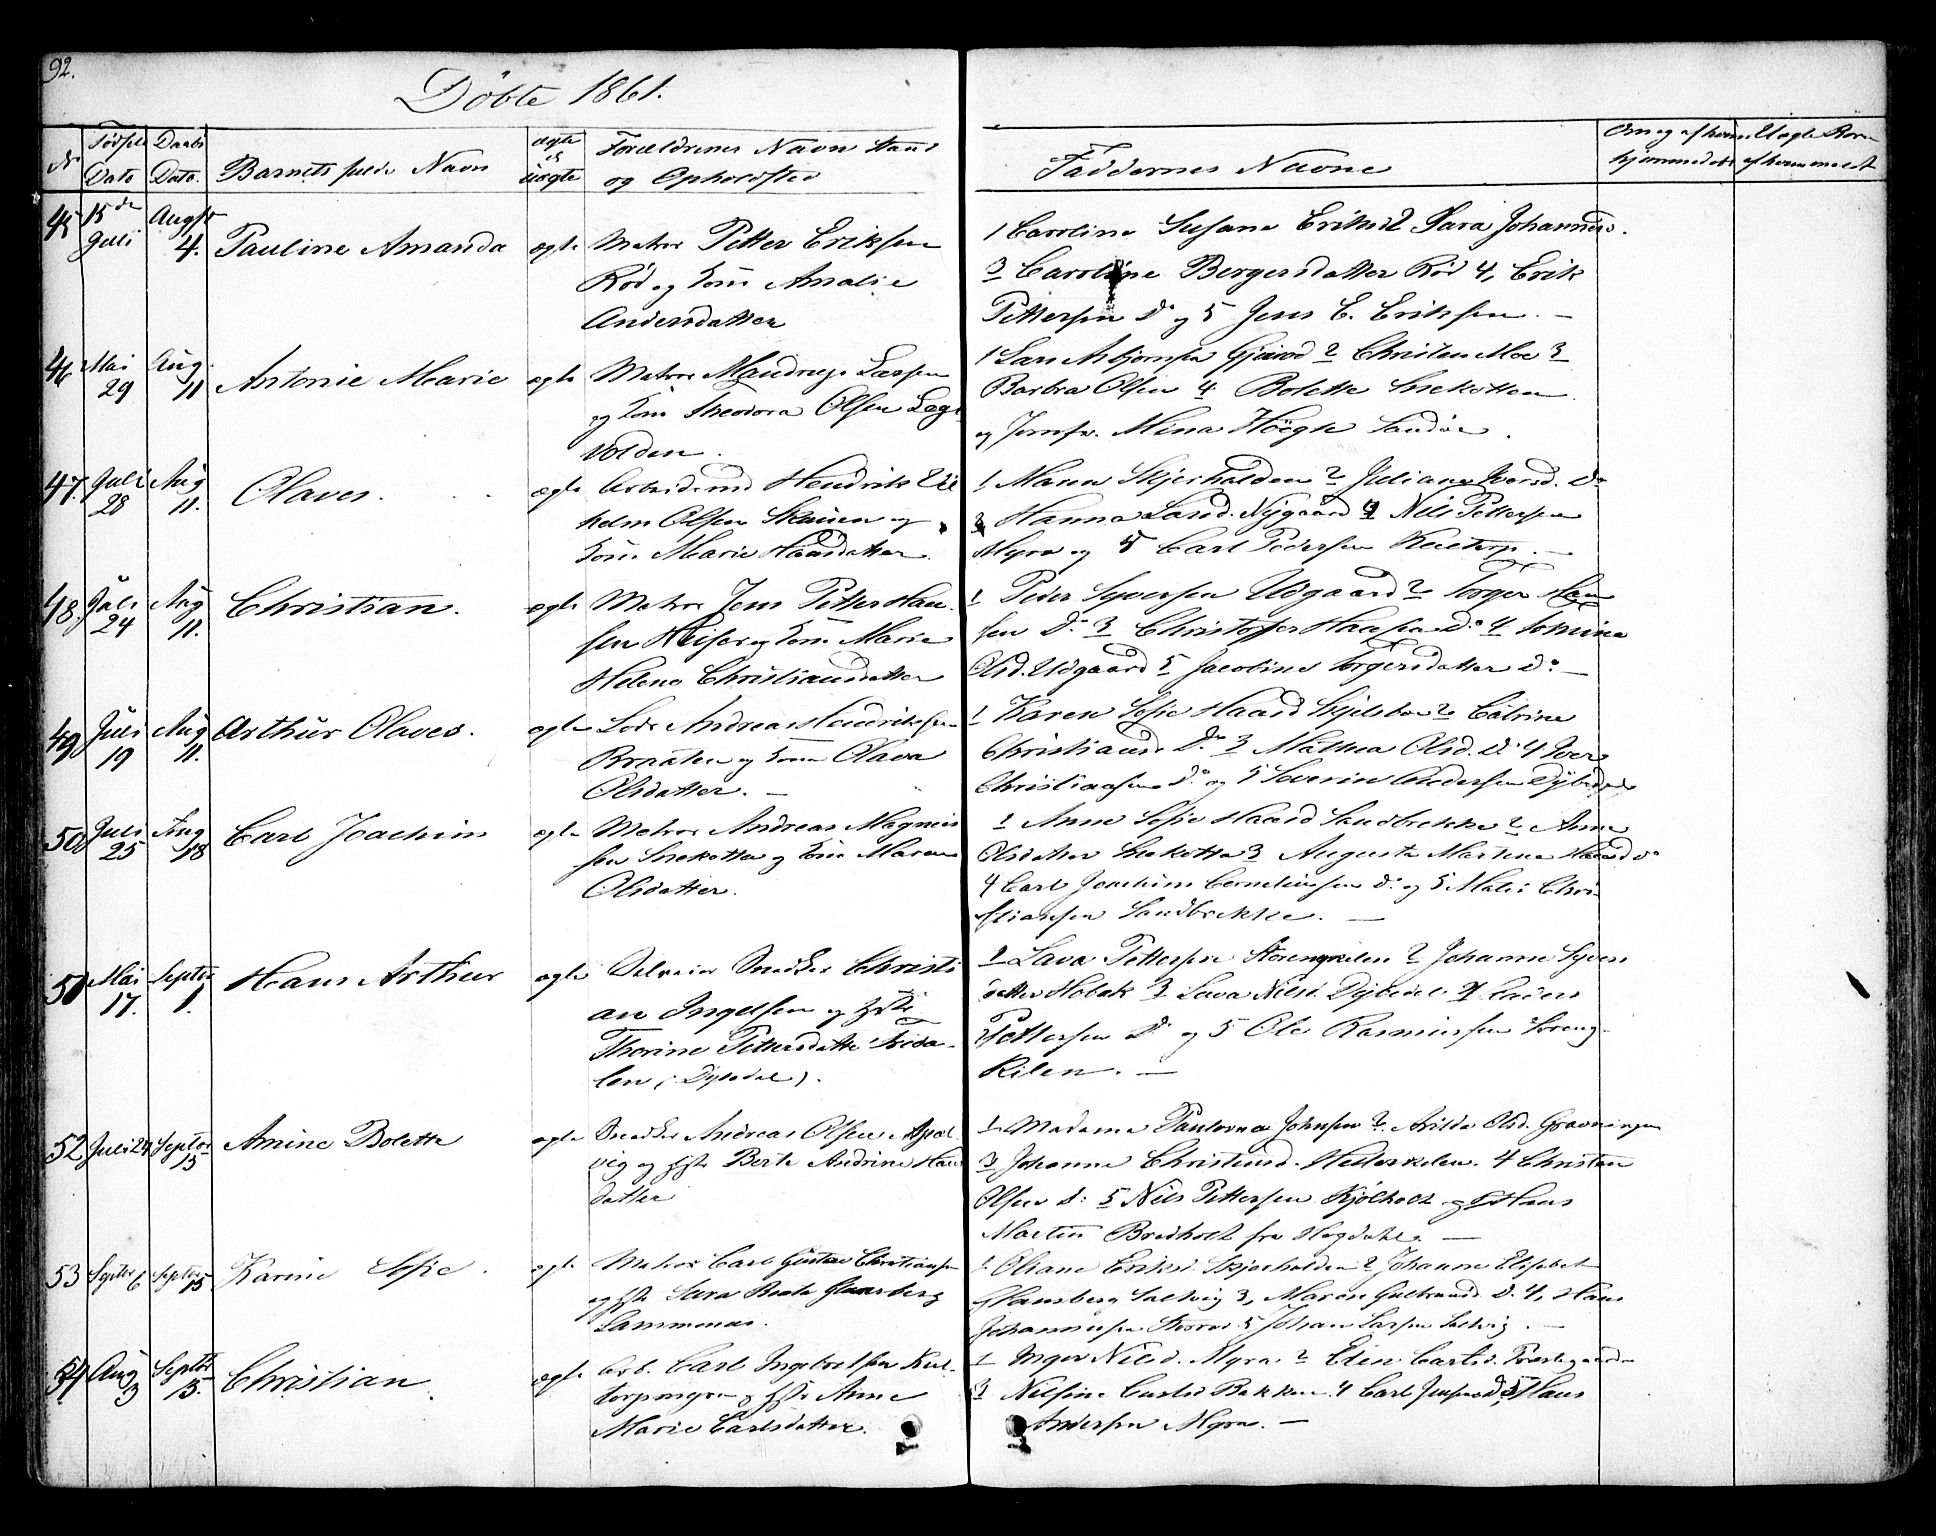 92.
Döbte 1861.
No Födsels Dato Daabs Dato. Barnets fulde Navn ægte el uægte Forældrenes Navn Stand og Opholdsted
Faddernes Navne
Om og af hvem hjemmedøbt Uægte Børn af hvem meldt
45 15de Juli Augst 4. Pauline Amanda ægte Matros Petter Eriksen
Röd og Kone Amalie
Andersdatter
1 Caroline Susane Eriksd 2 Sara Johannesd.
3 Caroline Bergersdatter Röd 4, Erik
Pettersen Do og 5 Jens E. Eriksen. —
46 Mai 29 Aug. 11 Antonie Marie ægte Matros Mandrup Larsen
og Kone Theodora Olsen Løgs
volden.
1 Lars Asbjørnsen 2 Christen Moe 3
Barbra Olsen 4 Bolette Snekotten
og Jomfr. Mina Höegh Sandøe.
47. Juli 28 Aug 11. Olaves. ægte Arbeidsmd Hendrik Vil
helm Olsen og
Kone Marie Hansdatter.
1 Maren Skjærhalden 2 Juliane Iversd. Do
3 Hanna Larsd. Nygaard 4 Nils Pettersen
Myra og 5 Carl Pedersen —
48. Juli 24 Aug 11. Christian. ægte Matros Jens Petter Han
sen og Kone Marie
Helene Christiansdatter
1 Peder Syversen Udgaard 2 Torger Han
sen Do 3 Christopher Hansen Do 4 Tomine
Olsd. Udgaard 5 Jacobine Torgersdatter Do —
49 Juli 19 Aug 11. Arthur Olaves. ægte Lods Andreas Hendriksen
Braaten og Kone Olava
Olsdatter. —
1 Karen Sofie Haasd Skjelsbo 2 Catrine
Christiansd Do 3 Mathea Olsd. Do 4 Iver
Christiansen Do og 5 Severin Andersen
50 Juli 25 Aug 18 Carl Joachim ægte Matros Andreas Magnus
sen Snekotten og Kone Maren
Olsdatter.
1 Anne Sofie Haasd Sandbrekke 2 Anne
Olsdatter Snekotten 3 Auguste Martine Do
4 Carl Joachim Corneliussen Do og 5 Chri
stiansen Sandbrekke. —
51 Mai 17. Septbr 1. Hans Arthur ægte Selveier Snedker Christi
an Ingelsen og Hstr
Thorine Pettersdatter
len (: Dybedal).
1 Lava Pettersen Stoengkilen 2 Johanne Syvers
datter Hobæk 3 Lava Nilsd. Dybedal 4 Anders
Pettersen Do og 5 Ole Rasmussen Storeng
kilen. —
52 Juli 24 Septbr 15 Amine Bolette ægte Snedker Andreas Olsen Apal
vig og Hstr Berte Andrine Hans
datter
1 Madame Paulovna Johnsen 2. Arilda Olsd. Gravningen
3 Johanne Christensd. Hestekilen. 4 Christen
Olsen Do 5 Nils Pettersen Kjölholt og 6 Hans
Martin Bredholt fra Hogdahl. —
53 Septbr 6 Septbr 15 Karine Sofie. ægte Matros Carl Gustav Christiansen
og Hstr Sara Beate Glansberg
Sammenæs.
1 Oliane Eriksd. Skjærhalden 2 Johanne Elisabet
Glansberg Saltvig 3, Maren Gulbrandsd Do. 4, Hans
Johannesen 5 Johan Larsen Saltvig. —
54 Aug 3 Septbr 15. Christian. ægte Arb. Carl Ingebretsen
og Hstr Anne
Marie Carlsdatter.
1 Inger Nilsd. Myra 2 Elen Carlsd. Prestegaarden
3 Nilsine Carlsd Bakken 4 Carl Jensen Do 5 Hans
Andersen Myra. —